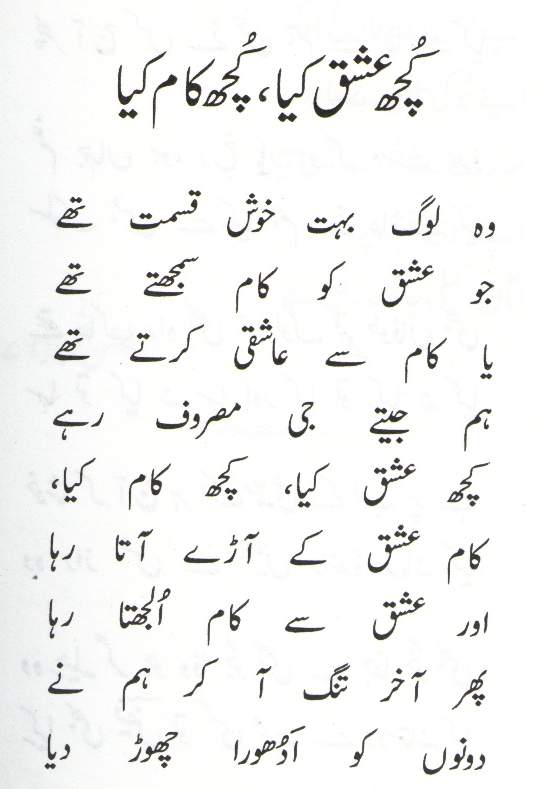 کُچھ عشق کیا، کُچھ کام کیا
وہ لوگ بہت خوش قسمت تھے
جو عشق کو کام سمجھتے تھے
یا کام سے عاشقی کرتے تھے
ہم جیتے جی مصروف رہے
کچھ عشق کیا، کچھ کام کیا،
کام عشق کے آڑے آتا رہا
اور عشق سے کام اُلجھتا رہا
پھر آخر تنگ آ کر ہم نے
دونوں کو اَدُھورا چھوڑ دیا